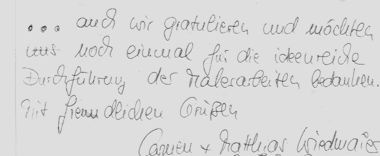 ... auch wir gratulieren und möchten
uns noch einmal für die ideenreiche
Durchführung der Malerarbeiten bedanken.
Mit freundlichen Grüßen
Carmen + Matthias Wiedmaier